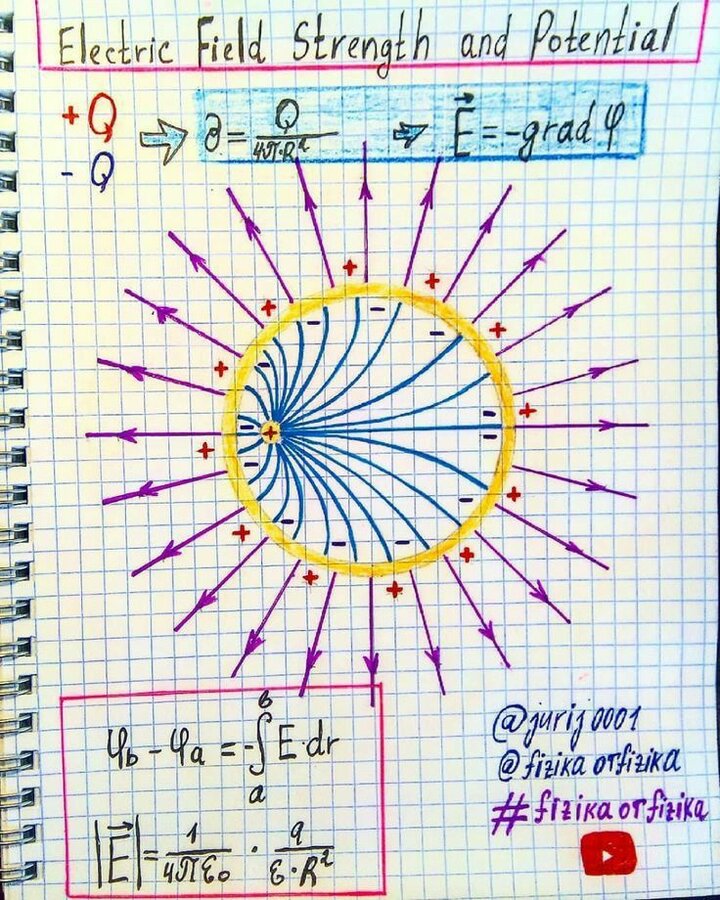 Electric Field Strength and Potential
+Q ⇒ ∂ = Q / 4π·R² ⇒ E⃗ = -grad φ
- Q
φb - φa = -∫ₐᵇ E·dr
|E⃗| = 1 / 4πε₀ · q / ε·R²
@jurij0001
@fizika otfizika
#fizika otfizika